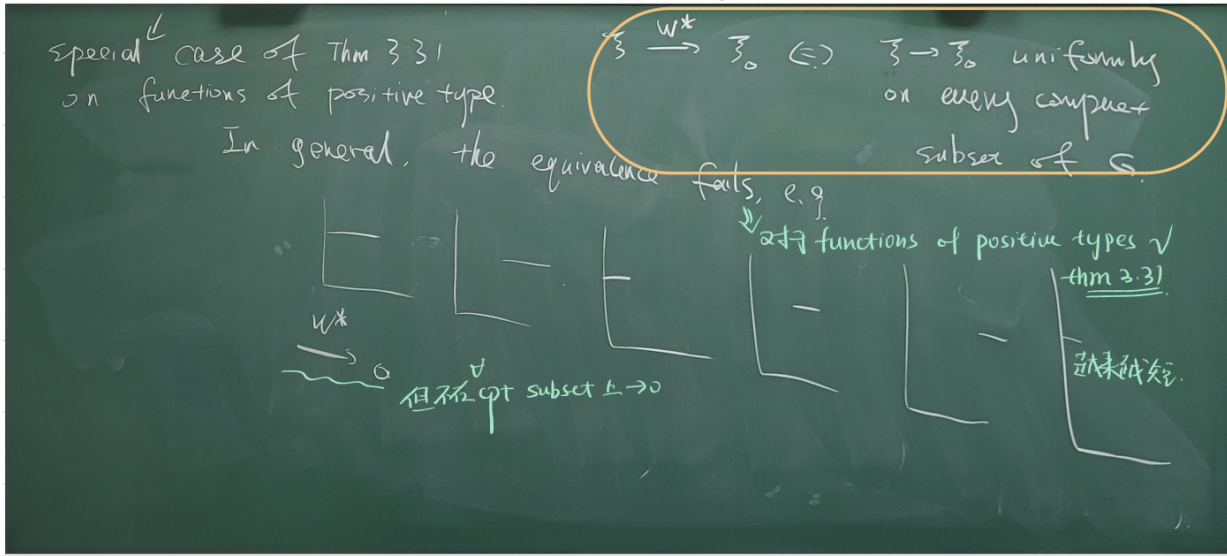 special case of Thm 3.31
on functions of positive type.
ξ —w*→ ξ₀ ⟺ ξ → ξ₀ uniformly
on every compact
subset of G.
In general, the equivalence fails, e.g.
对于 functions of positive types √
thm 3.31
w*
→ 0
但不在 ∀ cpt subset 上 → 0
越来越短.